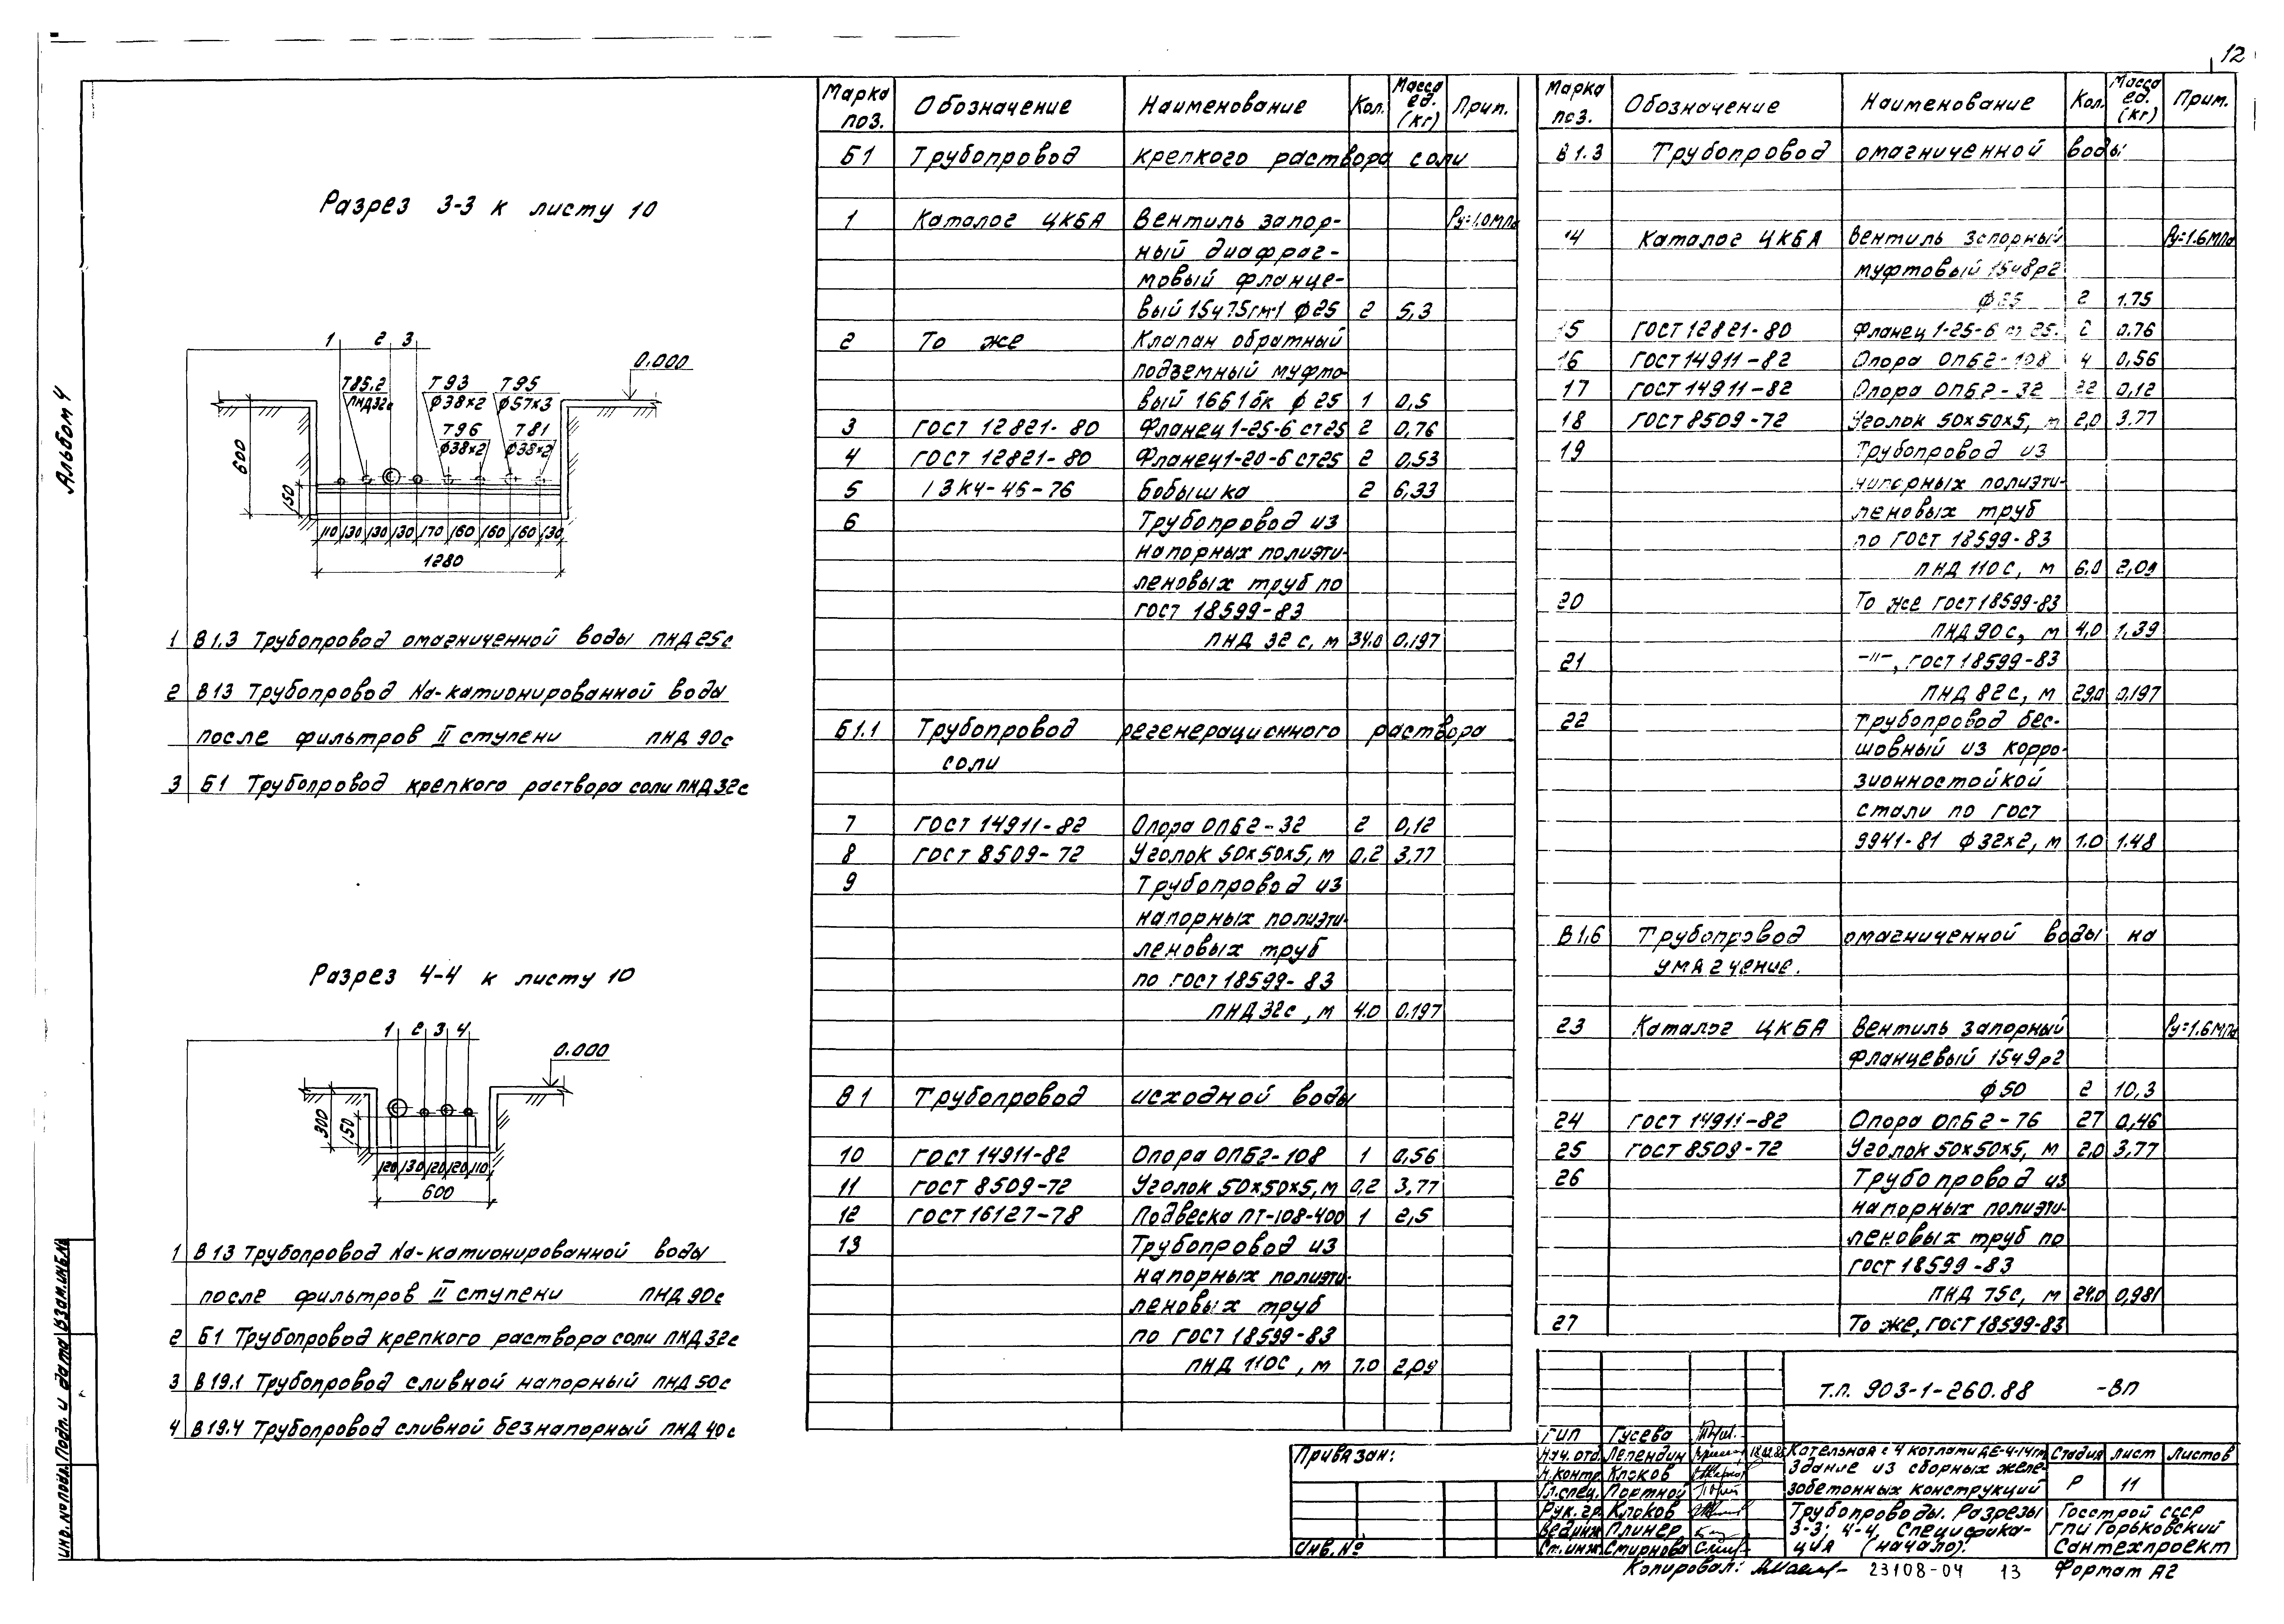 12
Альбом 4
Разрез 3-3 к листу 10
1 2 3
0.000
Т85.2 Т93 Т95
ПНД32с ф38×2 ф57×3
Т96 Т81
ф38×2 ф38×2
600
150
110 130 130 130 170 160 160 160 130
1280
1 В1.3 Трубопровод омагниченной воды ПНД 25с
2 В13 Трубопровод Na-катионированной воды
после фильтров II ступени ПНД 90с
3 Б1 Трубопровод крепкого раствора соли ПНД 32с
Разрез 4-4 к листу 10
1 2 3 4
0.000
300
150
120 130 120 120 110
600
1 В13 Трубопровод Na-катионированной воды
после фильтров II ступени ПНД 90с
2 Б1 Трубопровод крепкого раствора соли ПНД 32с
3 В19.1 Трубопровод сливной напорный ПНД 50с
4 В19.4 Трубопровод сливной безнапорный ПНД 40с
Марка поз. Обозначение Наименование Кол. Масса ед. (кг) Прим.
Б1 Трубопровод крепкого раствора соли
1 Каталог ЦКБА Вентиль запор- Ру=1.0МПа
ный диафраг-
мовый фланце-
вый 15ч75гм1 ф25 2 5,3
2 То же Клапан обратный
подземный муфто-
вый 16б1бк ф25 1 0,5
3 ГОСТ 12821-80 Фланец 1-25-6 ст25 2 0,76
4 ГОСТ 12821-80 Фланец 1-20-6 ст25 2 0,53
5 13К4-45-76 Бобышка 2 6,33
6 Трубопровод из
напорных полиэти-
леновых труб по
ГОСТ 18599-83
ПНД 32с, м 34.0 0,197
Б1.1 Трубопровод регенерационного раствора
соли
7 ГОСТ 14911-82 Опора ОПБ2-32 2 0,12
8 ГОСТ 8509-72 Уголок 50×50×5, м 0,2 3,77
9 Трубопровод из
напорных полиэти-
леновых труб
по ГОСТ 18599-83
ПНД 32с, м 4.0 0.197
В1 Трубопровод исходной воды
10 ГОСТ 14911-82 Опора ОПБ2-108 1 0,56
11 ГОСТ 8509-72 Уголок 50×50×5, м 0,2 3,77
12 ГОСТ 16127-78 Подвеска ПТ-108-400 1 2,5
13 Трубопровод из
напорных полиэти-
леновых труб
по ГОСТ 18599-83
ПНД 110С, м 7.0 2,09
Марка поз. Обозначение Наименование Кол. Масса ед. (кг) Прим.
В1.3 Трубопровод омагниченной воды
14 Каталог ЦКБА Вентиль запорный Ру=1.6МПа
муфтовый 15ч8р2
ф25 2 1.75
15 ГОСТ 12821-80 Фланец 1-25-6 ст 25. 2 0.76
16 ГОСТ 14911-82 Опора ОПБ2-108 4 0,56
17 ГОСТ 14911-82 Опора ОПБ2-32 22 0,12
18 ГОСТ 8509-72 Уголок 50×50×5, м 2,0 3.77
19 Трубопровод из
напорных полиэти-
леновых труб
по ГОСТ 18599-83
ПНД 110С, м 6.0 2,09
20 То же ГОСТ 18599-83
ПНД 90с, м 4,0 1,39
21 -"-, ГОСТ 18599-83
ПНД 82с, м 29,0 0,197
22 Трубопровод бес-
шовный из корро-
зионностойкой
стали по ГОСТ
9941-81 ф32×2, м 1.0 1.48
В1,6 Трубопровод омагниченной воды на
умягчение.
23 Каталог ЦКБА Вентиль запорный Ру=1.6МПа
фланцевый 15ч9р2
ф50 2 10,3
24 ГОСТ 14911-82 Опора ОПБ2-76 27 0,46
25 ГОСТ 8509-72 Уголок 50×50×5, м 2,0 3,77
26 Трубопровод из
напорных полиэти-
леновых труб по
ГОСТ 18599-83
ПНД 75с, м 24.0 0,981
27 То же, ГОСТ 18599-83
Т.П. 903-1-260.88 -ВП
ГИП Гусева
Нач. отд. Лепендин
Н.контр. Клоков
Гл.спец. Портной
Рук. гр. Клоков
Вед.инж. Плинер
Ст.инж. Смирнова
Котельная с 4 котлами ДЕ-4-14гм
Здание из сборных желе-
зобетонных конструкций
Стадия Лист Листов
Р 11
Трубопроводы. Разрезы
3-3; 4-4, Специфика-
ция (начало).
Госстрой СССР
ГПИ Горьковский
Сантехпроект
Привязан:
Инв. №
Инв. № подл. Подп. и дата Взам.инв.№
Копировал: 23108-04 13 Формат А2